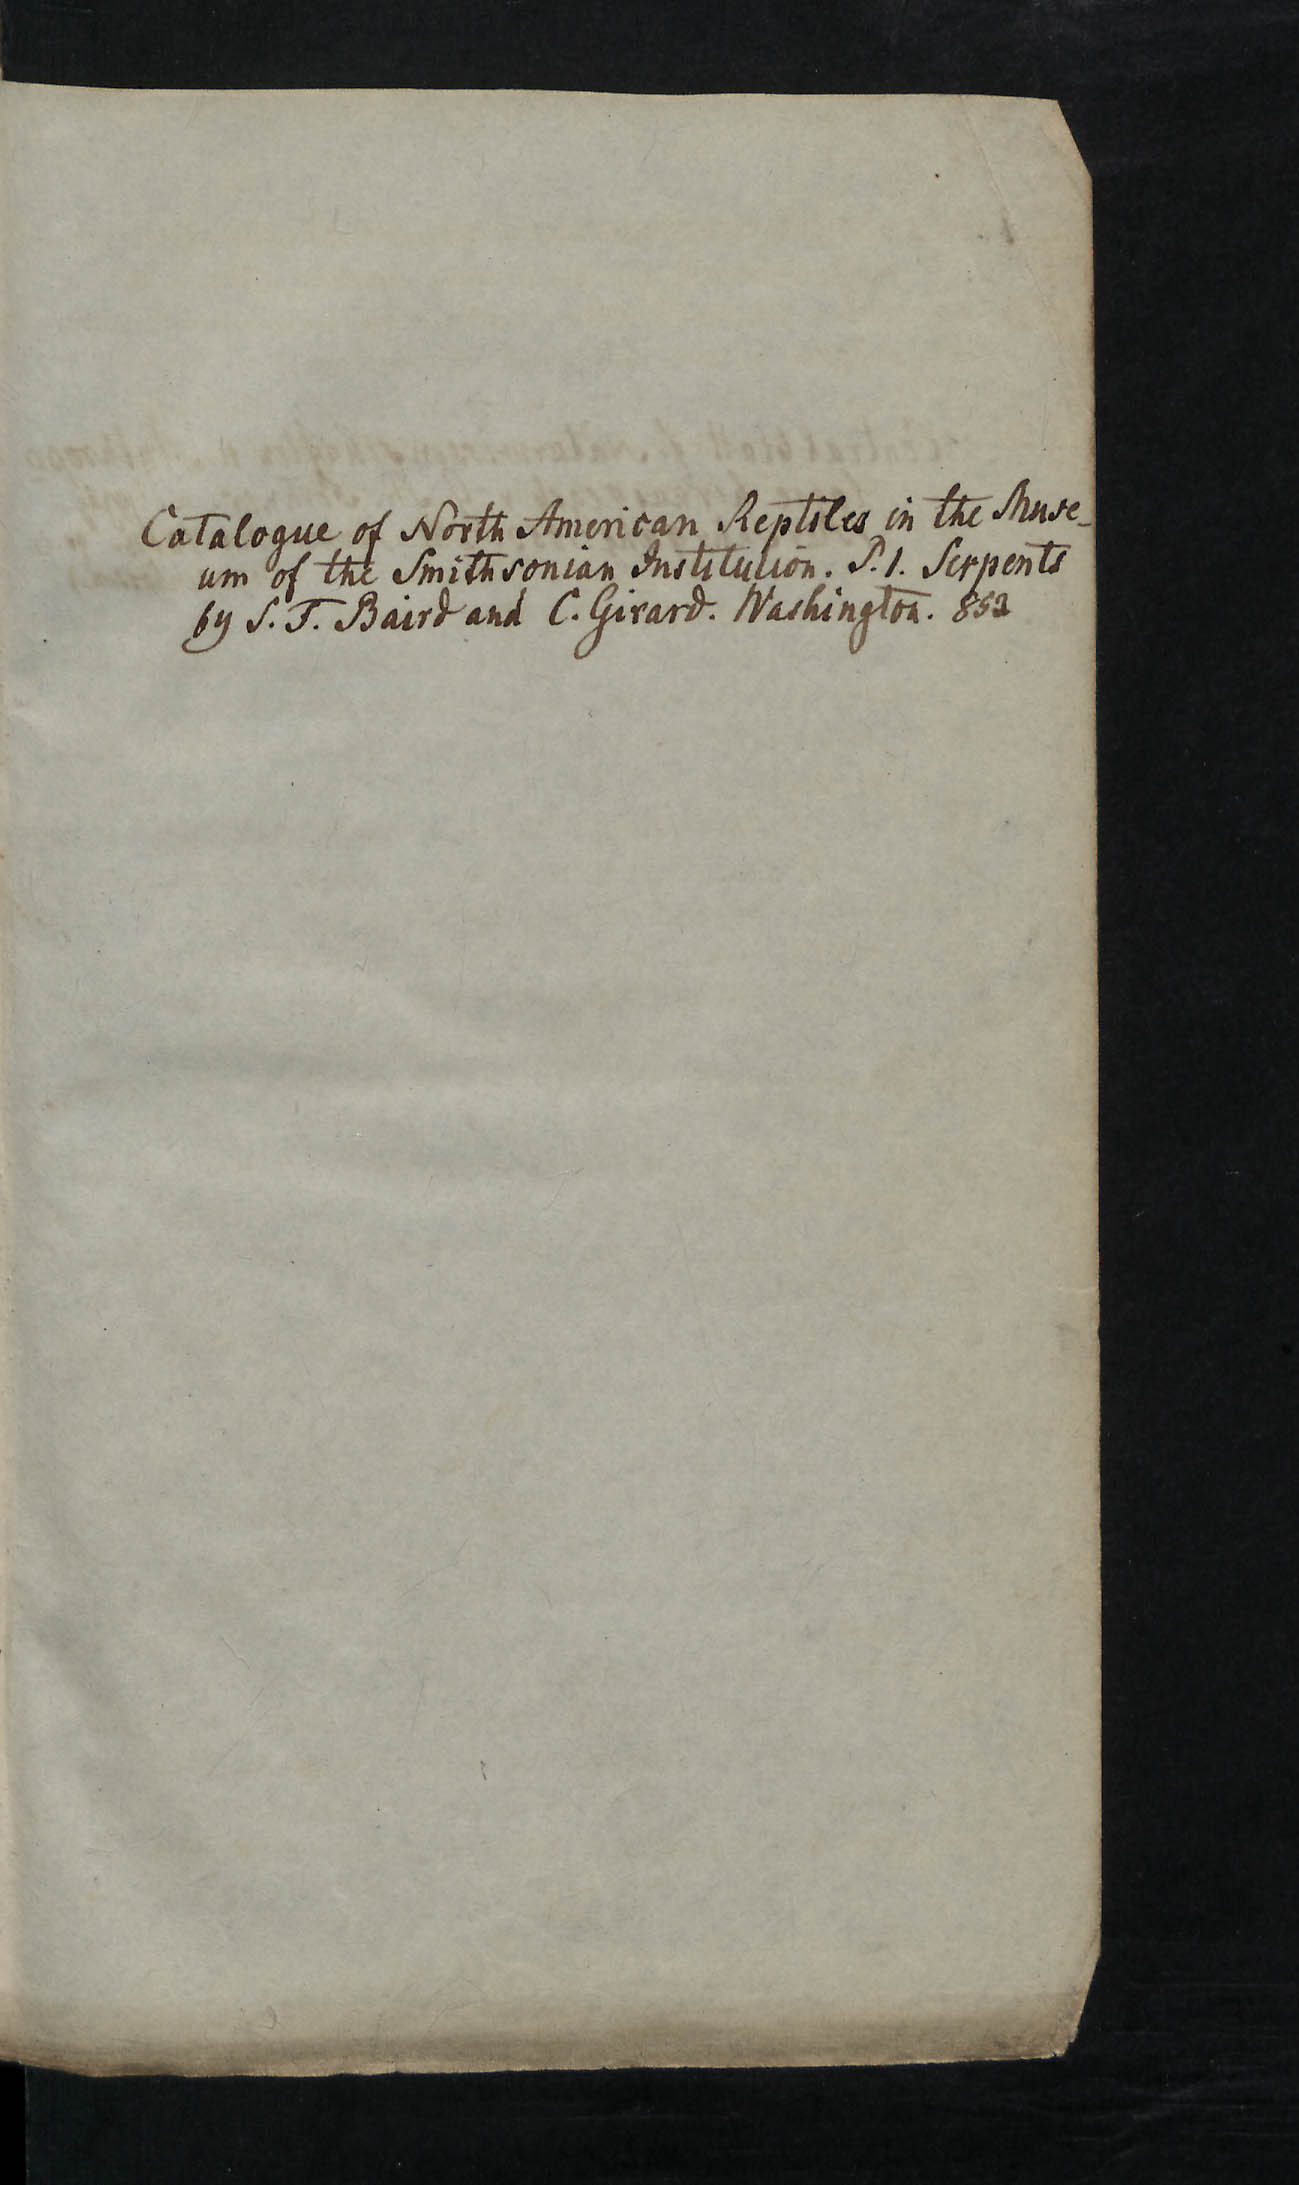 Catalogue of North American Reptiles in the Muse-
um of the Smithsonian Institution. P. 1. Serpents
by S. F. Baird and C. Girard. Washington. 853